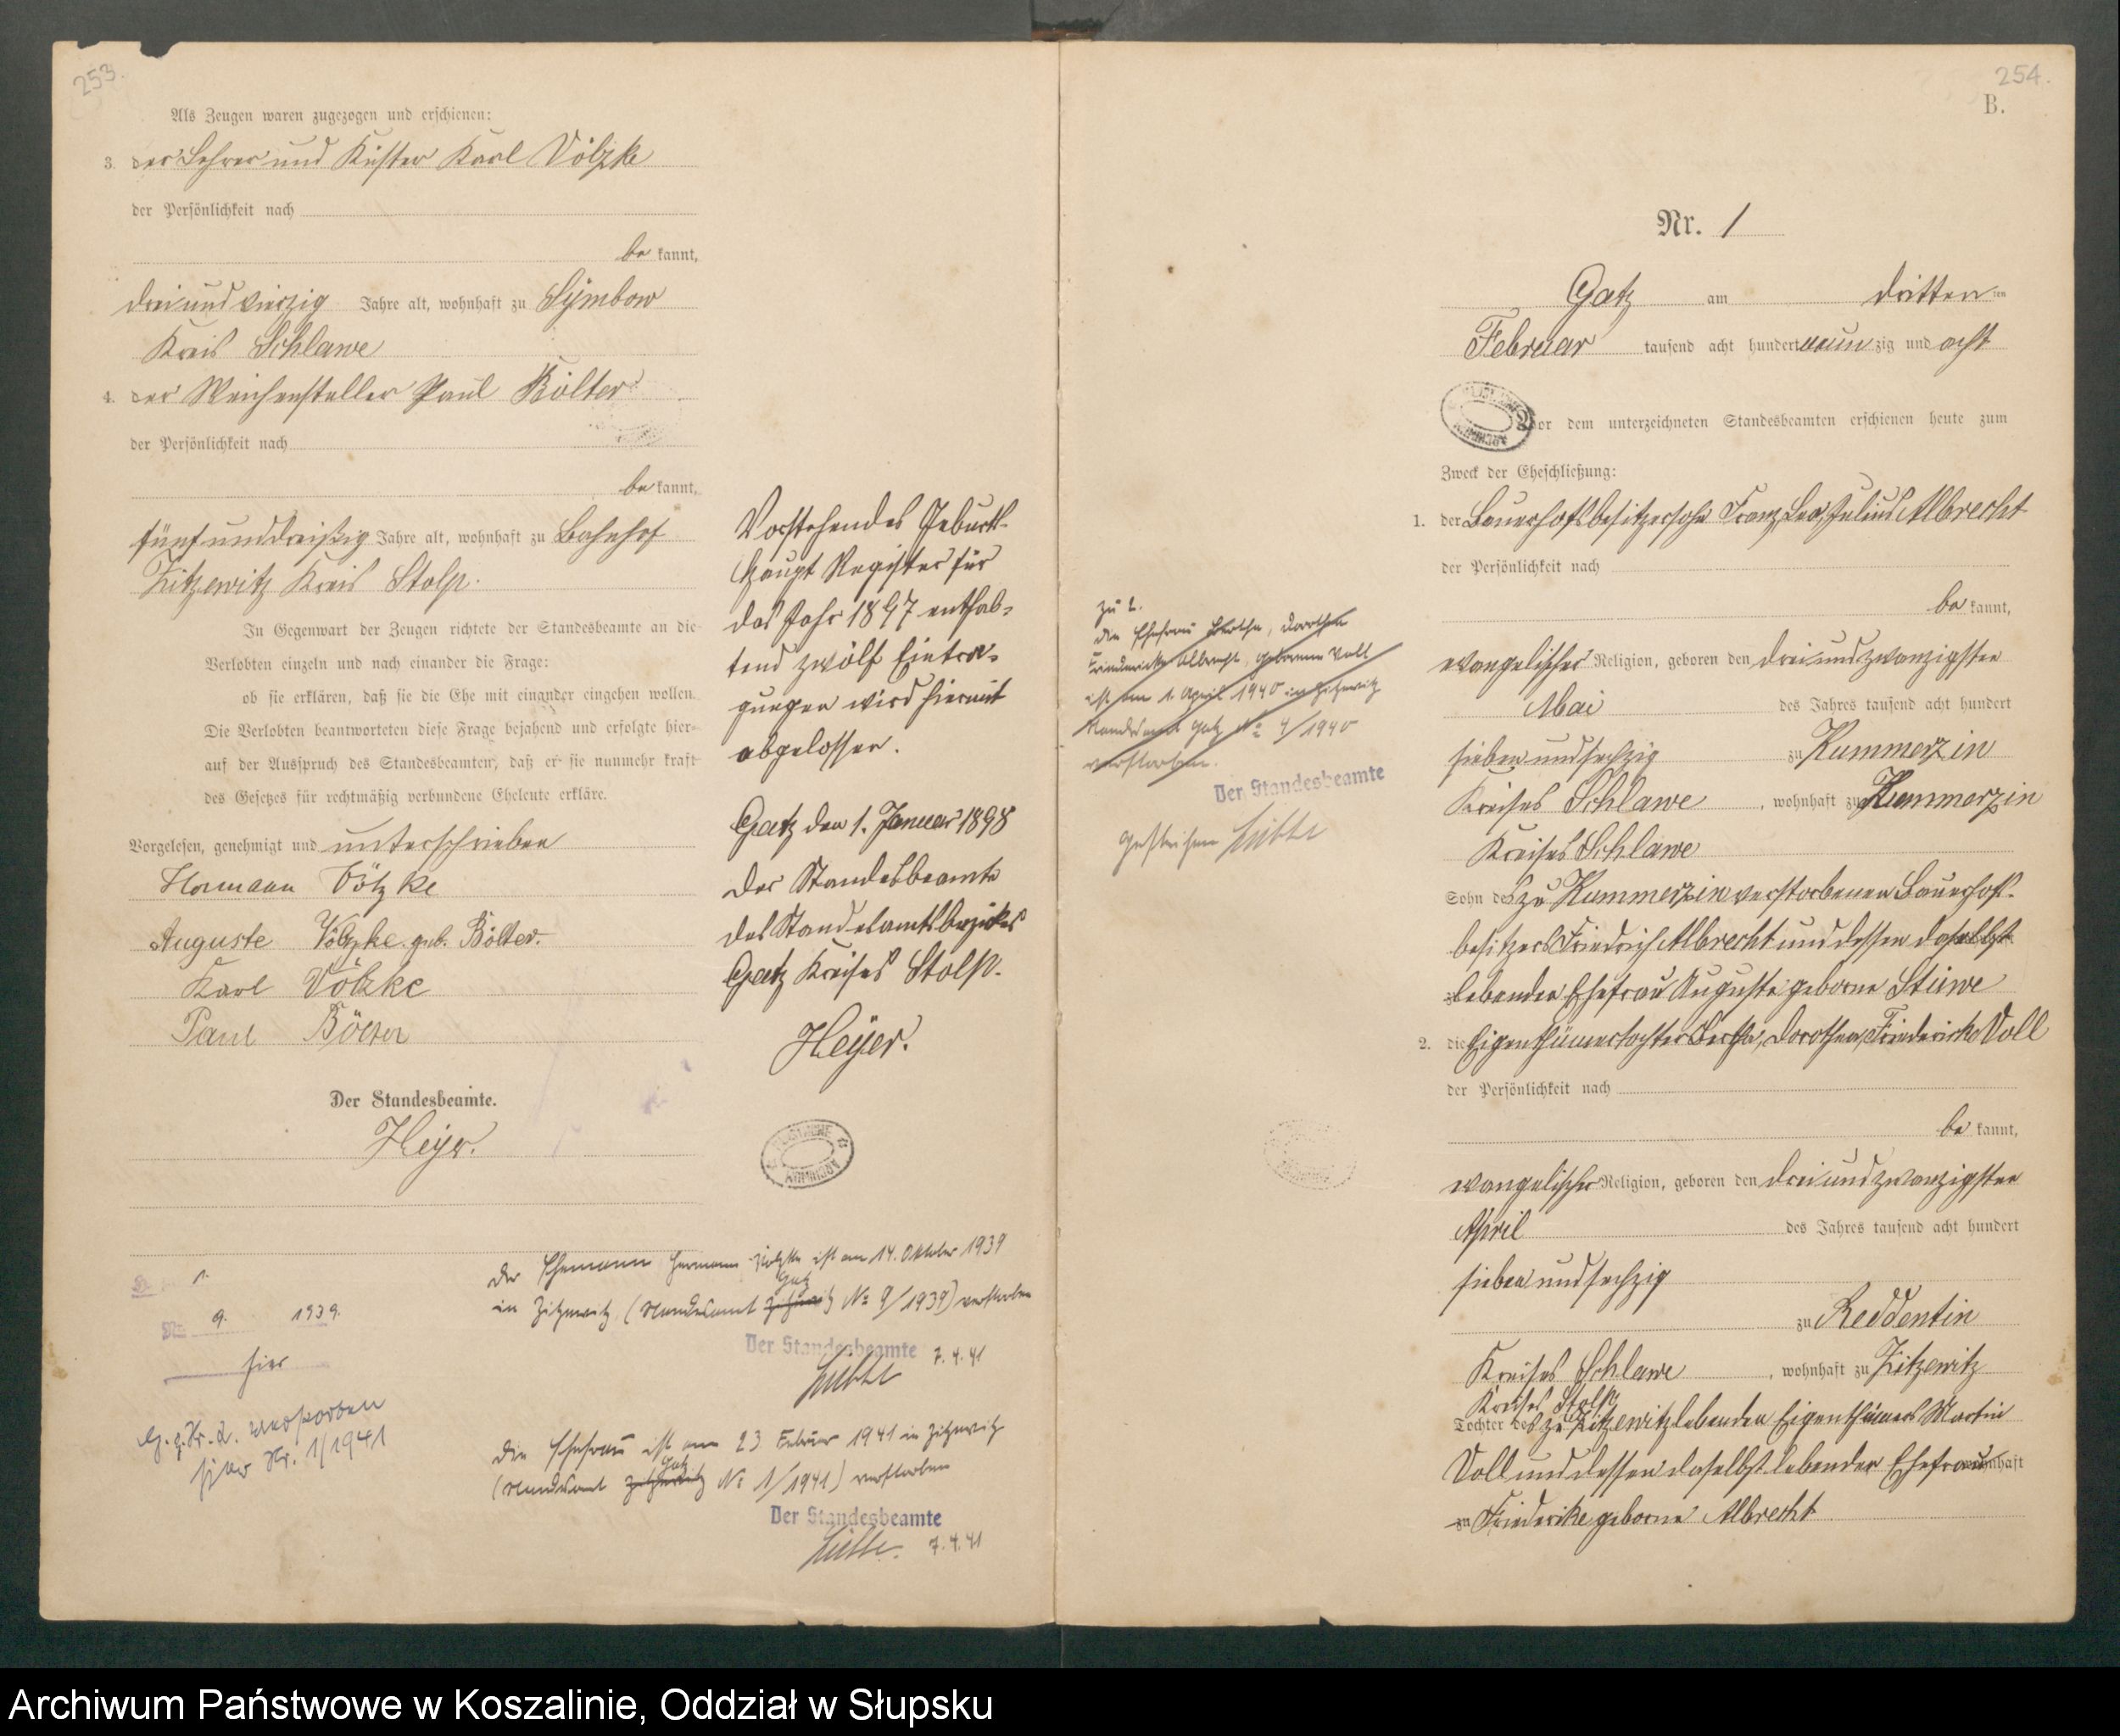 253.
Als Zeugen waren zugezogen und erschienen:
3. der Lehrer und Küster Karl Völzke
der Persönlichkeit nach
be kannt,
dreiundvierzig Jahre alt, wohnhaft zu Symbow
Kreis Schlawe
4. der Weichensteller Paul Bölter
der Persönlichkeit nach
be kannt,
fünfunddreißig Jahre alt, wohnhaft zu Bahnhof
Zitzewitz Kreis Stolp.
In Gegenwart der Zeugen richtete der Standesbeamte an die
Verlobten einzeln und nach einander die Frage:
ob sie erklären, daß sie die Ehe mit einander eingehen wollen.
Die Verlobten beantworteten diese Frage bejahend und erfolgte hier-
auf der Ausspruch des Standesbeamten, daß er sie nunmehr kraft
des Gesetzes für rechtmäßig verbundene Eheleute erkläre.
Vorgelesen, genehmigt und unterschrieben
Hermann Völzke
Auguste Völzke geb. Bölter.
Karl Völzke
Paul Bölter
Der Standesbeamte.
Heyer.
Vorstehendes Geburts-
Haupt Register für
das Jahr 1897 enthal-
tend zwölf Eintra-
gungen wird hiermit
abgelossen.
Gatz den 1. Januar 1898
Der Standesbeamte
des Standesamtsbezirkes
Gatz Kreises Stolp.
Heyer.
1.
Nr. 9. 1939.
hier
G. z. Nr. 2. verstorben
hier Nr. 1/1941
Der Ehemann Hermann Völzke ist am 14. Oktober 1939
Gatz
in Zitzewitz (Standesamt Zitzewitz № 9/1939) verstorben
Der Standesbeamte
7.4.41
Die Ehefrau ist am 23 Februar 1941 in Zitzewitz
Gatz
(Standesamt Zitzewitz № 1/1941) verstorben
Der Standesbeamte
7.4.41
254.
B.
Nr. 1
Gatz am dritten ten
Februar tausend acht hundert neun zig und acht
Vor dem unterzeichneten Standesbeamten erschienen heute zum
Zweck der Eheschließung:
1. der Bauerhofsbesitzersohn Franz, Leo, Julius Albrecht
der Persönlichkeit nach
be kannt,
evangelischer Religion, geboren den dreiundzwanzigsten
Mai des Jahres tausend acht hundert
siebenundsechzig zu Kummerzin
Kreises Schlawe, wohnhaft zu Kummerzin
Kreises Schlawe
Sohn des zu Kummerzin verstorbenen Bauerhofs-
besitzers Friedrich Albrecht und dessen daselbst
lebenden Ehefrau Auguste geborne Stüwe
2. die Eigenthümertochter Bertha, Dorothea, Friederike Voll
der Persönlichkeit nach
be kannt,
evangelischer Religion, geboren den dreiundzwanzigsten
April des Jahres tausend acht hundert
siebenundsechzig
zu Reddentin
Kreises Schlawe, wohnhaft zu Zitzewitz
Kreises Stolp
Tochter des zu Zitzewitz lebenden Eigenthümers Martin
Voll und dessen daselbst lebenden Ehefrau wohnhaft
zu Friederike geborne Albrecht
zu 2.
Die Ehefrau Bertha, Dorothea
Friederike Albrecht, geborene Voll
ist am 1. April 1940 in Zitzewitz
Standesamt Gatz № 4/1940
verstorben.
Der Standesbeamte
gestrichen
Archiwum Państwowe w Koszalinie, Oddział w Słupsku